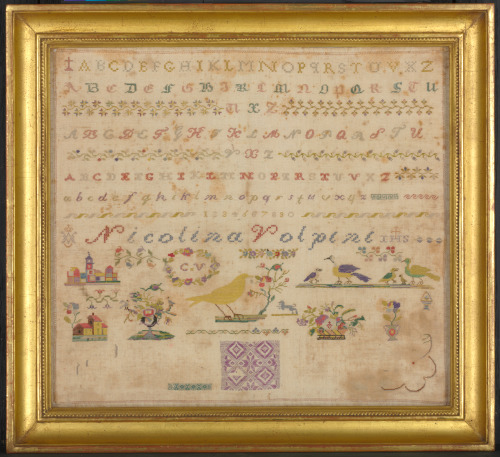 A B C D E F G H I K L M N O P Q R S T U V X Z
A B C D E F G H I K L M N O P Q R S T U
V X Z
A B C D E F G H I K L M N O P Q R S T U
V X Z
A B C D E F G H I K L M N O P Q R S T U V X Z
a b c d e f g h i k l m n o p q r s t u v x y z
1 2 3 4 5 6 7 8 9 0
Nicolina Volpini IHS
C.V